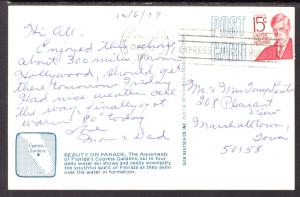 12/6/79
Hi All.
Enjoyed the
about 300 miles from
Hollywood, should get
there tomorrow
Had nice weather all
the way, finally got
warm 80° today
Love
Mom & Dad
POST
CARD
15c
EXPRESS
Mr. & Mrs
208 Pleasant
View
Marshalltown,
Iowa
50158
Cypress
Gardens
BEAUTY ON PARADE, The Aquamaids
of Florida's Cypress Gardens, ski in four
daily water ski shows and really exemplify
the youthful spirit of Florida as they skim
over the internationally famous waters.